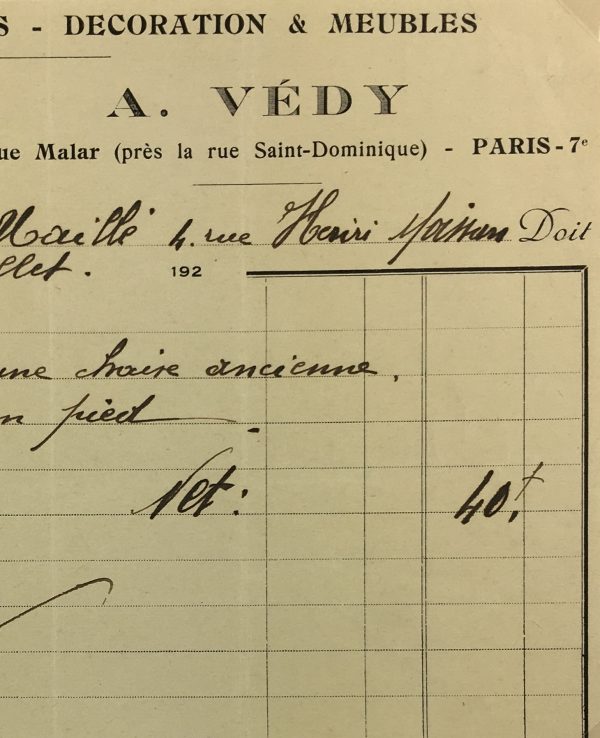 S - DECORATION & MEUBLES
A. VÉDY
ue Malar (près la rue Saint-Dominique) - PARIS-7e
Maillé 4. rue Henri Moissan Doit
llet. 192
une chaise ancienne,
n pied
Net: 40.f